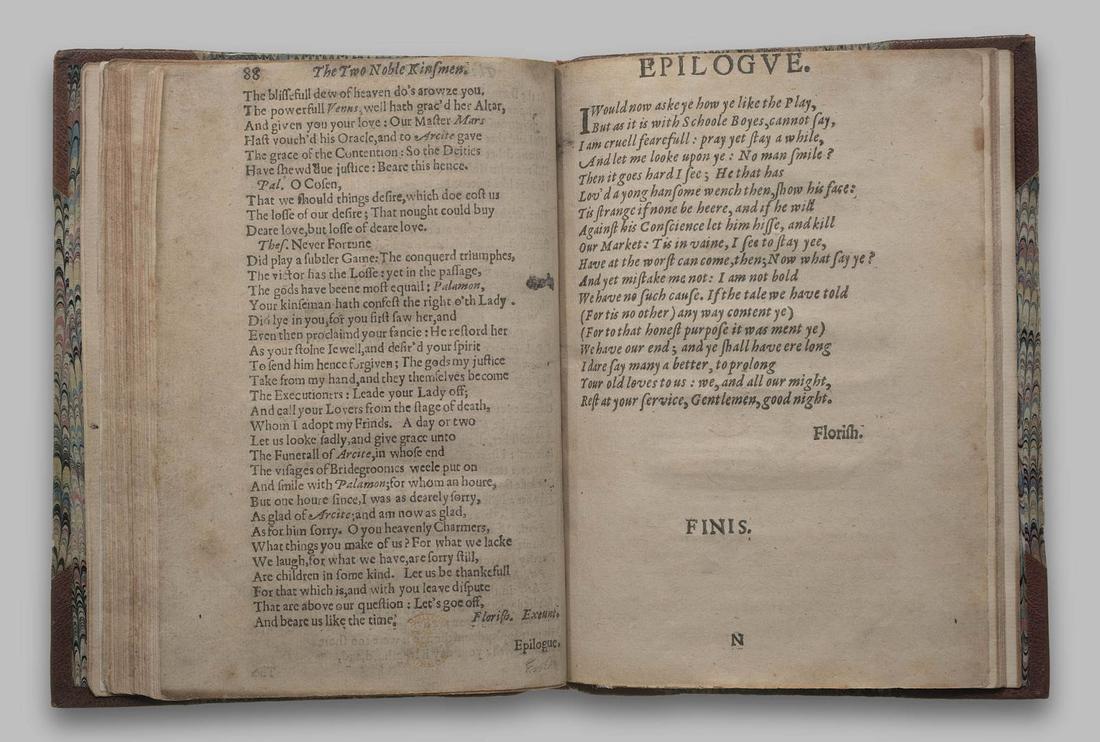 88
The Two Noble Kinſmen.
The bliſſefull dew of heaven do's arowze you.
The powerfull Venus, well hath grac'd her Altar,
And given you your love : Our Maſter Mars
Haſt vouch'd his Oracle, and to Arcite gave
The grace of the Contention : So the Deities
Have ſhewd due juſtice : Beare this hence.
Pal. O Coſen,
That we ſhould things deſire, which doe coſt us
The loſſe of our deſire ; That nought could buy
Deare love, but loſſe of deare love.
Theſ. Never Fortune
Did play a ſubtler Game : The conquerd triumphes,
The victor has the Loſſe : yet in the paſſage,
The gods have beene moſt equall : Palamon,
Your kinſeman hath confeſt the right o'th Lady.
Did lye in you, for you firſt ſaw her, and
Even then proclaimd your fancie : He reſtord her
As your ſtolne Iewell, and deſir'd your ſpirit
To ſend him hence forgiven ; The gods my juſtice
Take from my hand, and they themſelves become
The Executioners : Leade your Lady off ;
And call your Lovers from the ſtage of death,
Whom I adopt my Frinds. A day or two
Let us looke ſadly, and give grace unto
The Funerall of Arcite, in whoſe end
The viſages of Bridegroomes weele put on
And ſmile with Palamon ; for whom an houre,
But one houre ſince, I was as dearely ſorry,
As glad of Arcite ; and am now as glad,
As for him ſorry. O you heavenly Charmers,
What things you make of us ? For what we lacke
We laugh, for what we have, are ſorry ſtill,
Are children in ſome kind. Let us be thankefull
For that which is, and with you leave diſpute
That are above our queſtion : Let's goe off,
And beare us like the time. Floriſh. Exeunt.
Epilogue.
EPILOGVE.
I Would now aske ye how ye like the Play,
But as it is with Schoole Boyes, cannot ſay,
I am cruell fearefull : pray yet ſtay a while,
And let me looke upon ye : No man ſmile ?
Then it goes hard I ſee ; He that has
Lov'd a yong hanſome wench then, ſhow his face :
Tis ſtrange if none be heere, and if he will
Againſt his Conſcience let him hiſſe, and kill
Our Market : Tis in vaine, I ſee to ſtay yee,
Have at the worſt can come, then ; Now what ſay ye ?
And yet miſtake me not : I am not bold
We have no ſuch cauſe. If the tale we have told
(For tis no other) any way content ye)
(For to that honeſt purpoſe it was ment ye)
We have our end ; and ye ſhall have ere long
I dare ſay many a better, to prolong
Your old loves to us : we, and all our might,
Reſt at your ſervice, Gentlemen, good night.
Floriſh.
FINIS.
N